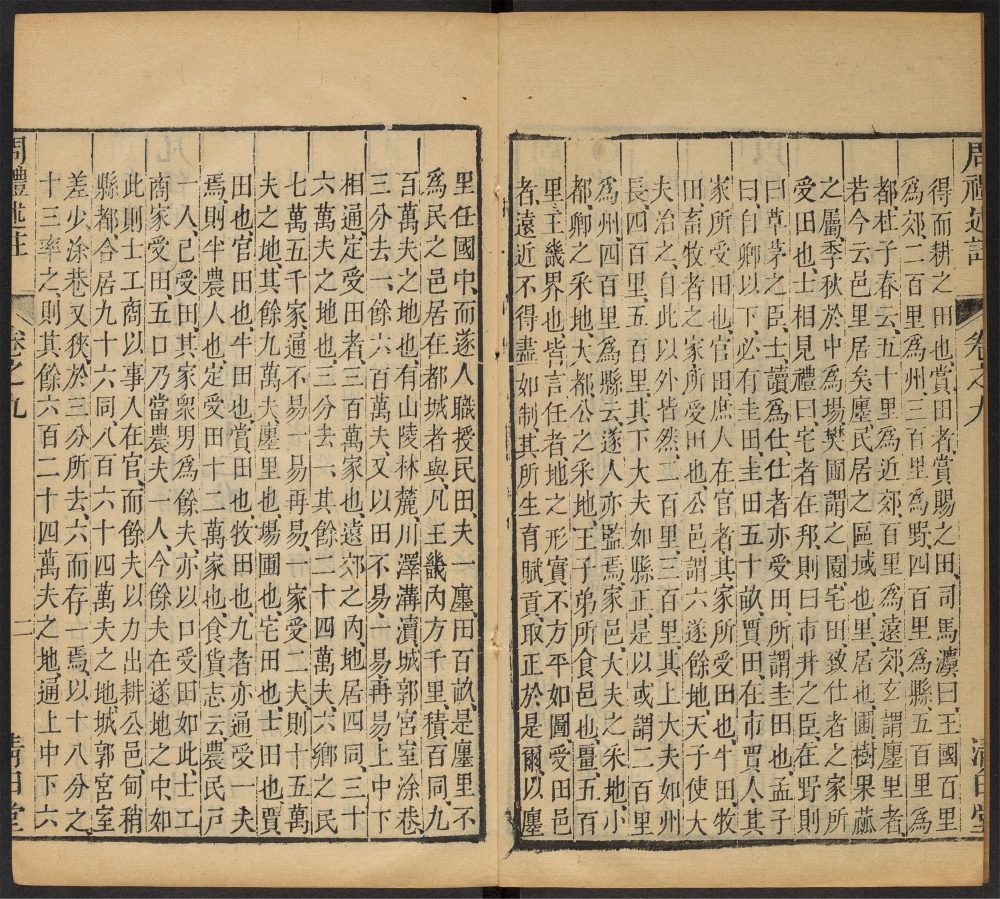 周禮述註 卷之九 清白堂
得而耕之田也賞田者賞賜之田司馬灋曰王國百里
爲郊二百里爲州三百里爲野四百里爲縣五百里爲
都杜子春云五十里爲近郊百里爲遠郊玄謂廛里者
若今云邑里居矣廛民居之區域也里居也圃樹果蓏
之屬季秋於中爲場樊圃謂之園宅田致仕者之家所
受田也士相見禮曰宅者在邦則曰市井之臣在野則
曰草茅之臣士讀爲仕仕者亦受田所謂圭田也孟子
曰自卿以下必有圭田圭田五十畝賈田在市賈人其
家所受田也官田庶人在官者其家所受田也牛田牧
田畜牧者之家所受田也公邑謂六遂餘地天子使大
夫治之自此以外皆然二百里三百里其上大夫如州
長四百里五百里其下大夫如縣正是以或謂二百里
爲州四百里爲縣云遂人亦監焉家邑大夫之采地小
都卿之采地大都公之采地王子弟所食邑也畺五百
里王畿界也皆言任者地之形實不方平如圖受田邑
者遠近不得盡如制其所生育賦貢取正於是爾以廛
里任國中而遂人職授民田夫一廛田百畝是廛里不
爲民之邑居在都城者與凡王畿內方千里積百同九
百萬夫之地也有山陵林麓川澤溝瀆城郭宮室涂巷
三分去一餘六百萬夫又以田不易一易再易上中下
相通定受田者三百萬家也遠郊之內地居四同三十
六萬夫之地也三分去一其餘二十四萬夫六鄉之民
七萬五千家通不易一易再易一家受二夫則十五萬
夫之地其餘九萬夫廛里也場圃也宅田也士田也賈
田也官田也牛田也賞田也牧田也九者亦通受一夫
焉則半農人也定受田十二萬家也食貨志云農民戶
一人已受田其家衆男爲餘夫亦以口受田如此士工
商家受田五口乃當農夫一人今餘夫在遂地之中如
此則士工商以事人在官而餘夫以力出耕公邑甸稍
縣都合居九十六同八百六十四萬夫之地城郭宮室
差少涂巷又狹於三分所去六而存一焉以十八分之
十三率之則其餘六百二十四萬夫之地通上中下六
周禮述註 卷之九 二 清白堂